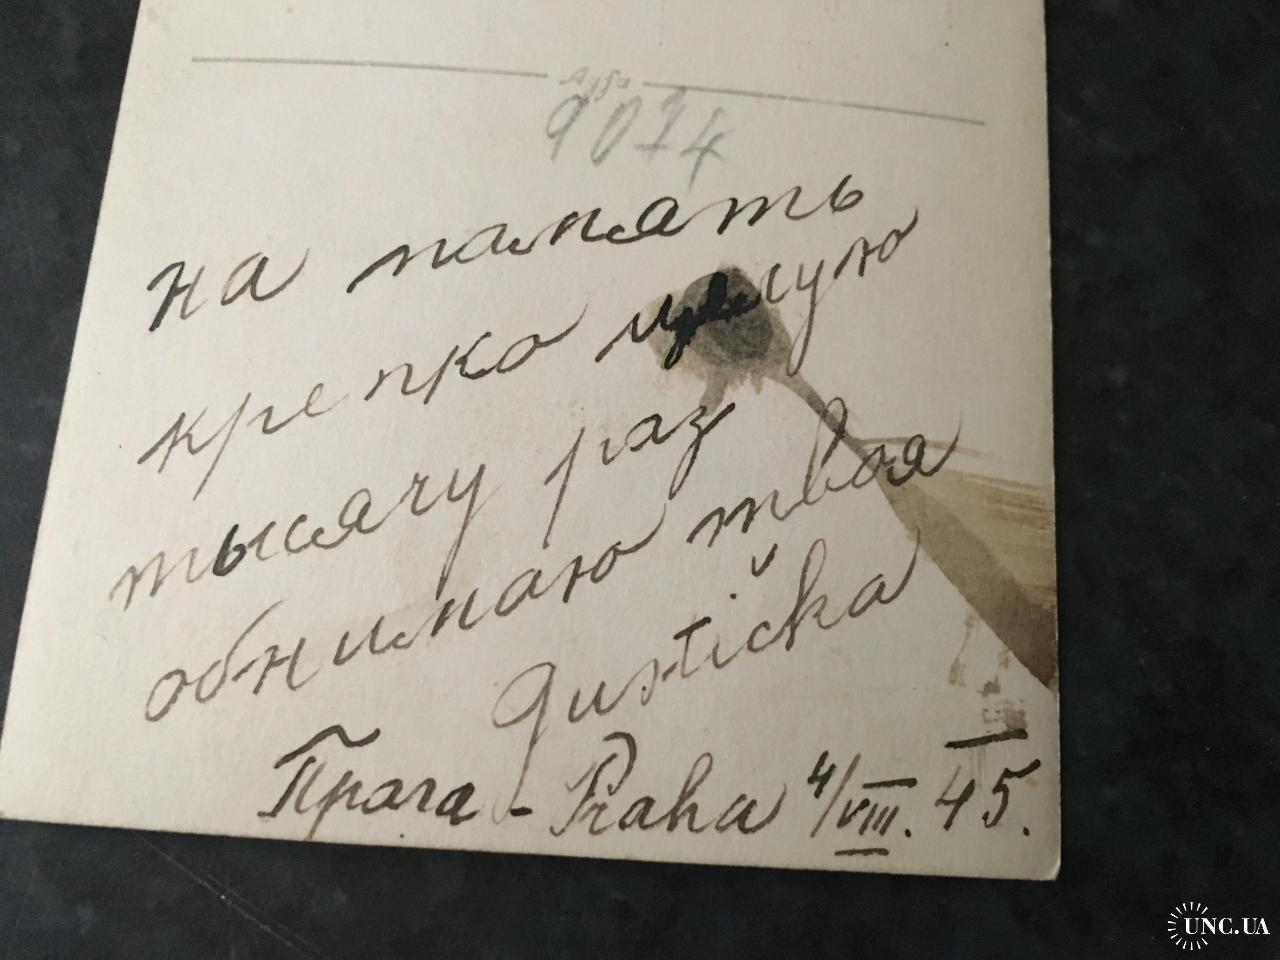 Agfa
9014
на память
крепко целую
тысячу раз
обнимаю твоя
Gustička
Прага - Praha 4/VIII. 45.
UNC.UA